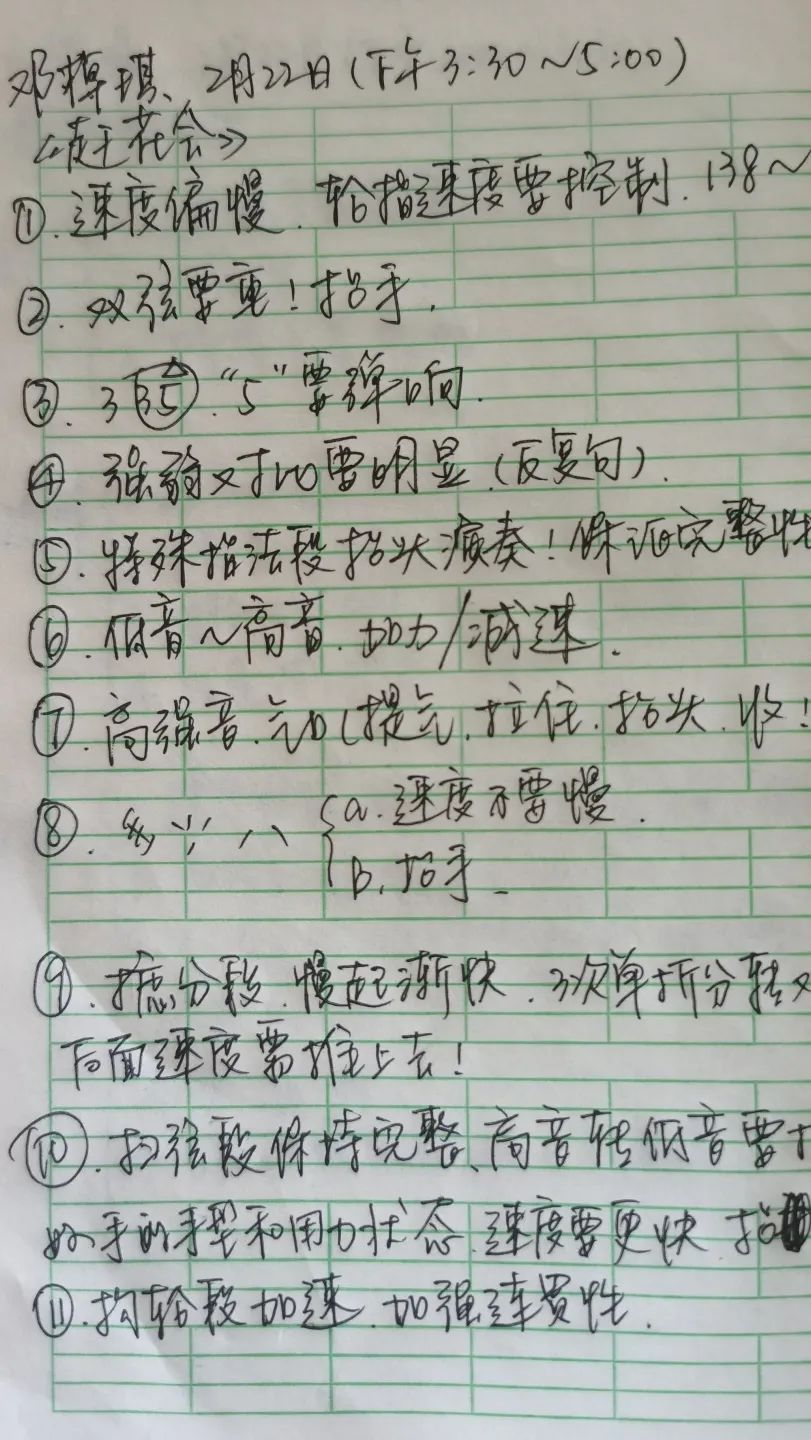 邓棹琪、2月22日(下午3:30~5:00)
《赶花会》
①.速度偏慢.轮指速度要控制.138~
②.双弦要重!抬手.
③.3 35."5"要弹响.
④.强弱对比要明显.(反复句).
⑤.特殊指法段抬头演奏!保证完整性
⑥.低音~高音.加力/减速.
⑦.高强音.气口(提气.拉住.抬头.收!
⑧. a.速度不要慢.
b.抬手.
⑨.摭分段.慢起渐快.3次单折分转双
后面速度需推上去!
⑩.扫弦段保持完整、高音转低音要
好手的手型和用力状态.速度要更快.抬
⑪.扣轮段加速.加强连贯性.